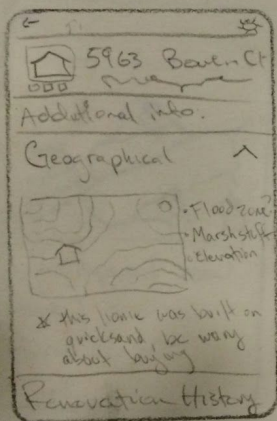 5963 Bowen Ct
Additional info.
Geographical
• Flood zone?
• Marsh stuff
• Elevation
* this home was built on
quicksand, be wary
about buying
Renovation History